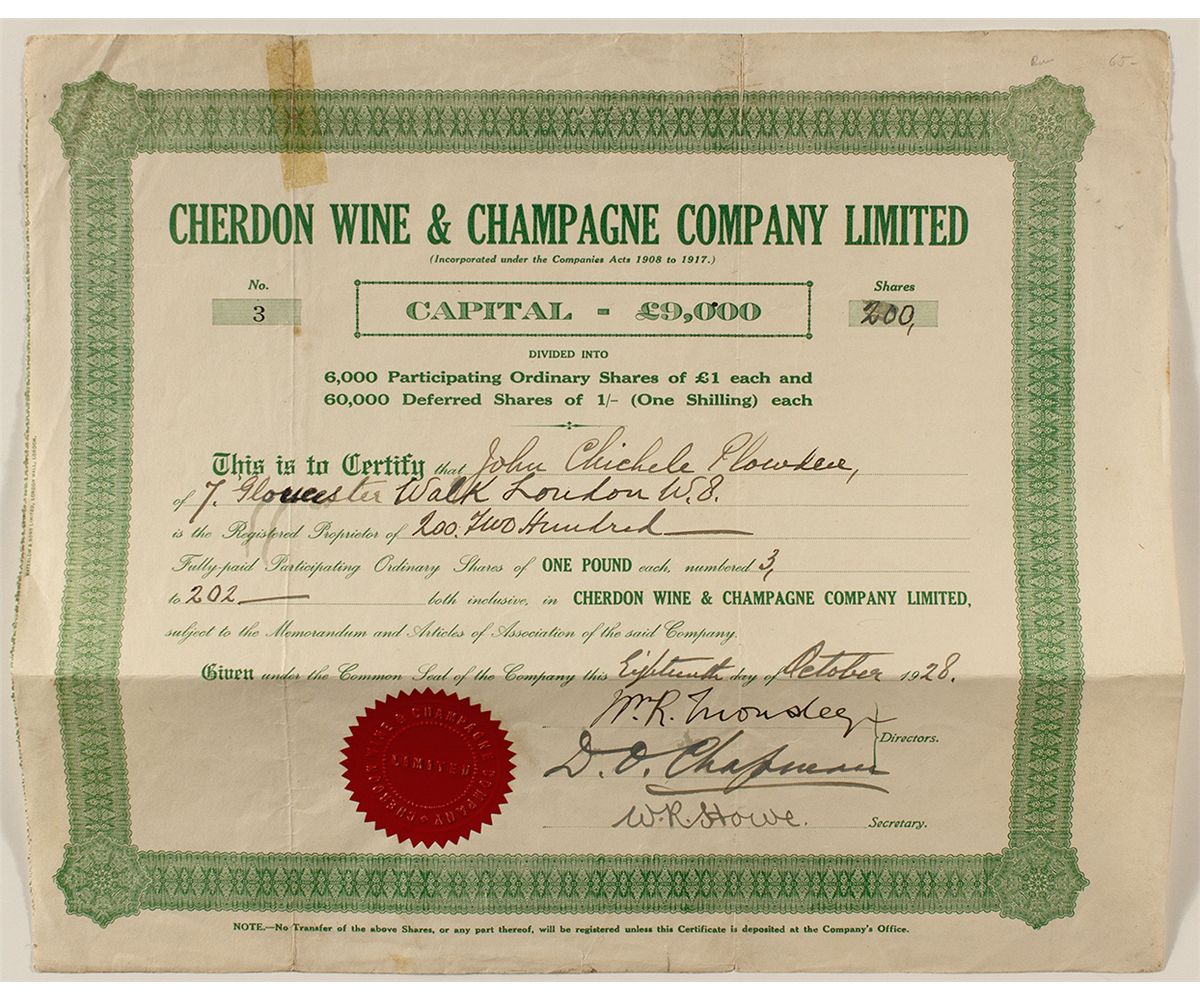 65-
CHERDON WINE & CHAMPAGNE COMPANY LIMITED
(Incorporated under the Companies Acts 1908 to 1917.)
No.
3
CAPITAL - £9,000
Shares
200,
DIVIDED INTO
6,000 Participating Ordinary Shares of £1 each and
60,000 Deferred Shares of 1/- (One Shilling) each
This is to Certify that John Chichele Plowden,
of 7. Gloucester Walk London W.8.
is the Registered Proprietor of 200. Two Hundred
Fully-paid Participating Ordinary Shares of ONE POUND each, numbered 3,
to 202 both inclusive, in CHERDON WINE & CHAMPAGNE COMPANY LIMITED,
subject to the Memorandum and Articles of Association of the said Company.
Given under the Common Seal of the Company this Eighteenth day of October 1928.
Wm. R.
D. O. Chapman
Directors.
W. R. Howe.
Secretary.
CHERDON WINE & CHAMPAGNE COMPANY
LIMITED
NOTE.—No Transfer of the above Shares, or any part thereof, will be registered unless this Certificate is deposited at the Company's Office.